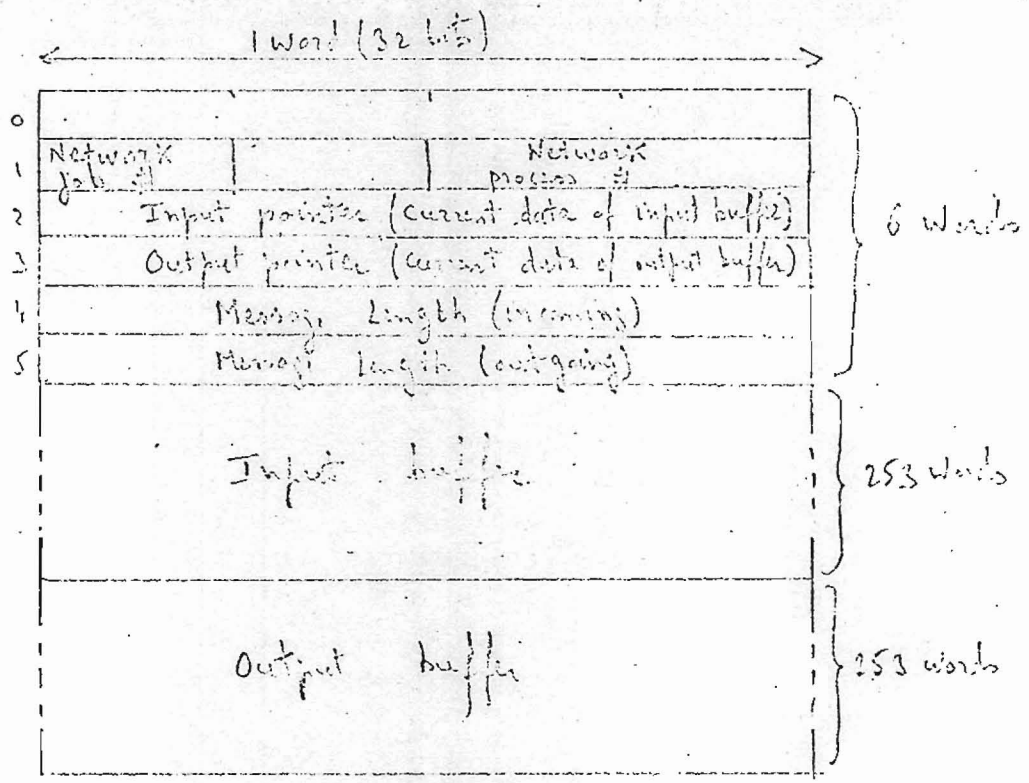 1 word (32 bits)
0
1
Network
job #
Network
process #
2
Input pointer (current data of input buffer)
3
Output pointer (current data of output buffer)
6 words
4
Message Length (incoming)
5
Message Length (outgoing)
Input buffer
253 words
Output buffer
253 words